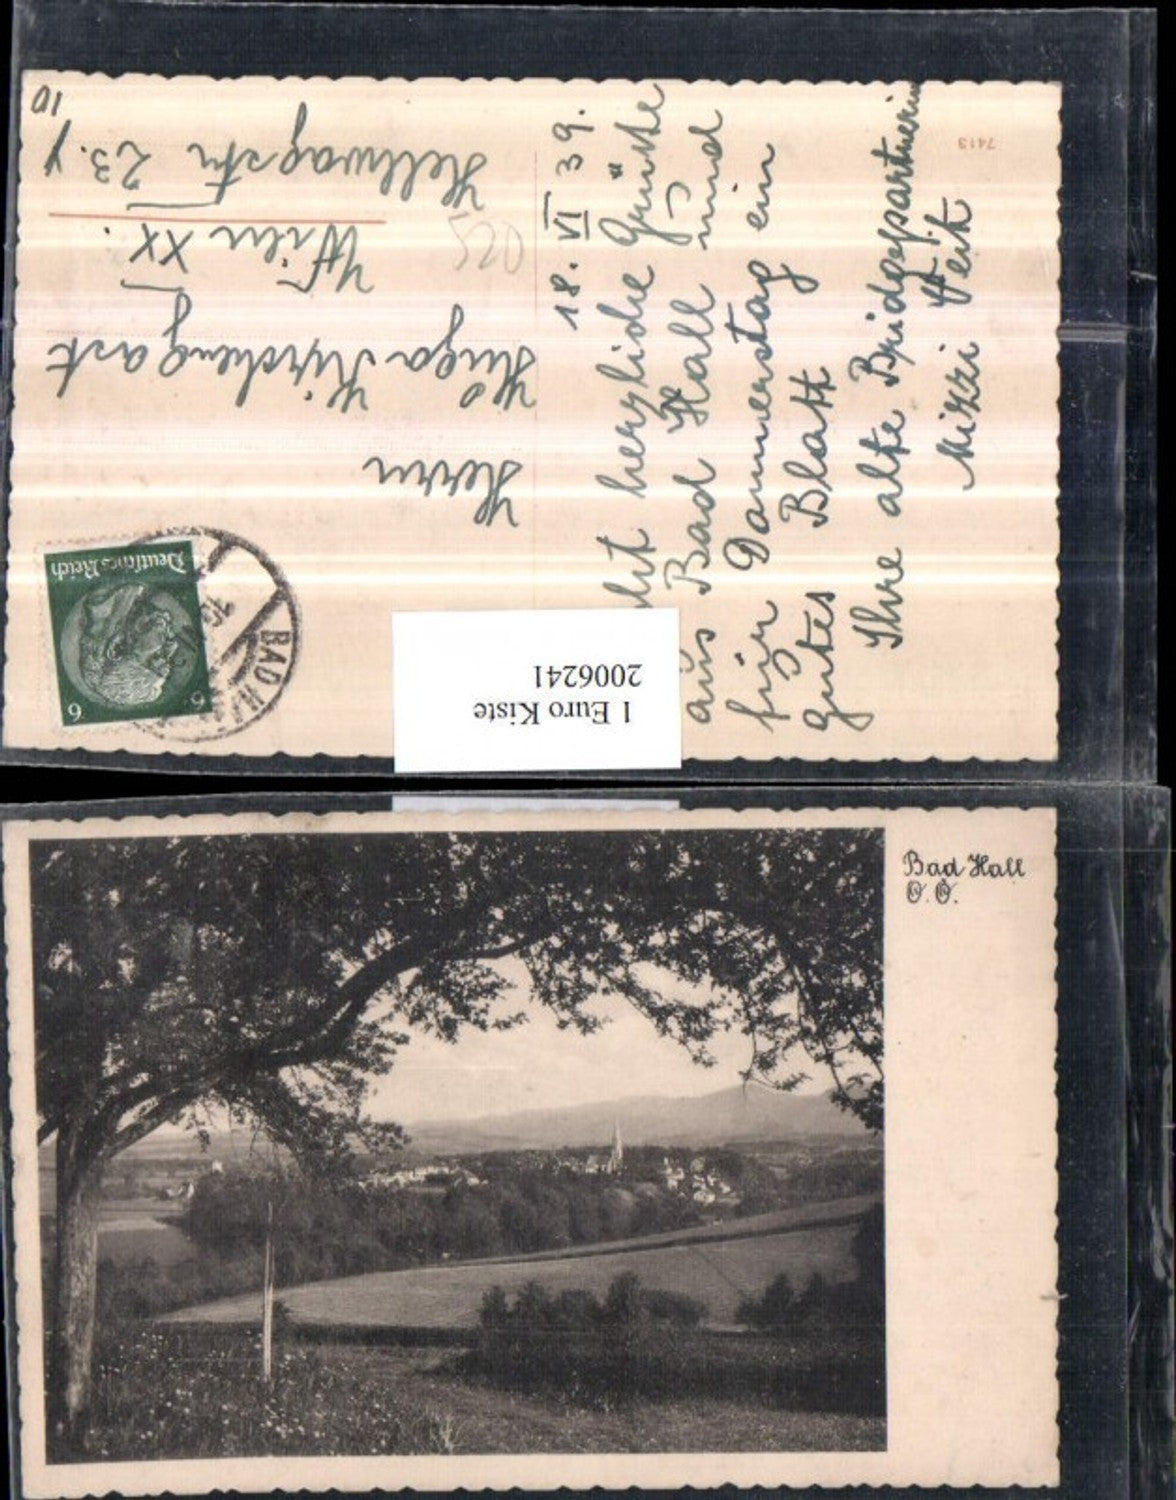 18. VI 39.
herzliche Grüße
aus Bad Hall und
für Donnerstag ein
gutes Blatt
Ihre alte Bridgepartnerin
Mizzi Veit
7413
Herrn
Hugo Kirchengast
Wien XX.
Hellwagstr. 23.
10
Deutsches Reich
6 6
BAD HALL
1 Euro Kiste
2006241
Bad Hall
O.Ö.